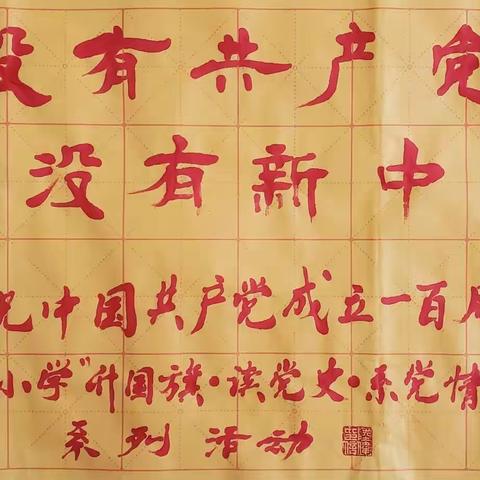 没有共产党
没有新中
祝中国共产党成立一百周
小学"升国旗·读党史·系党情
系列活动